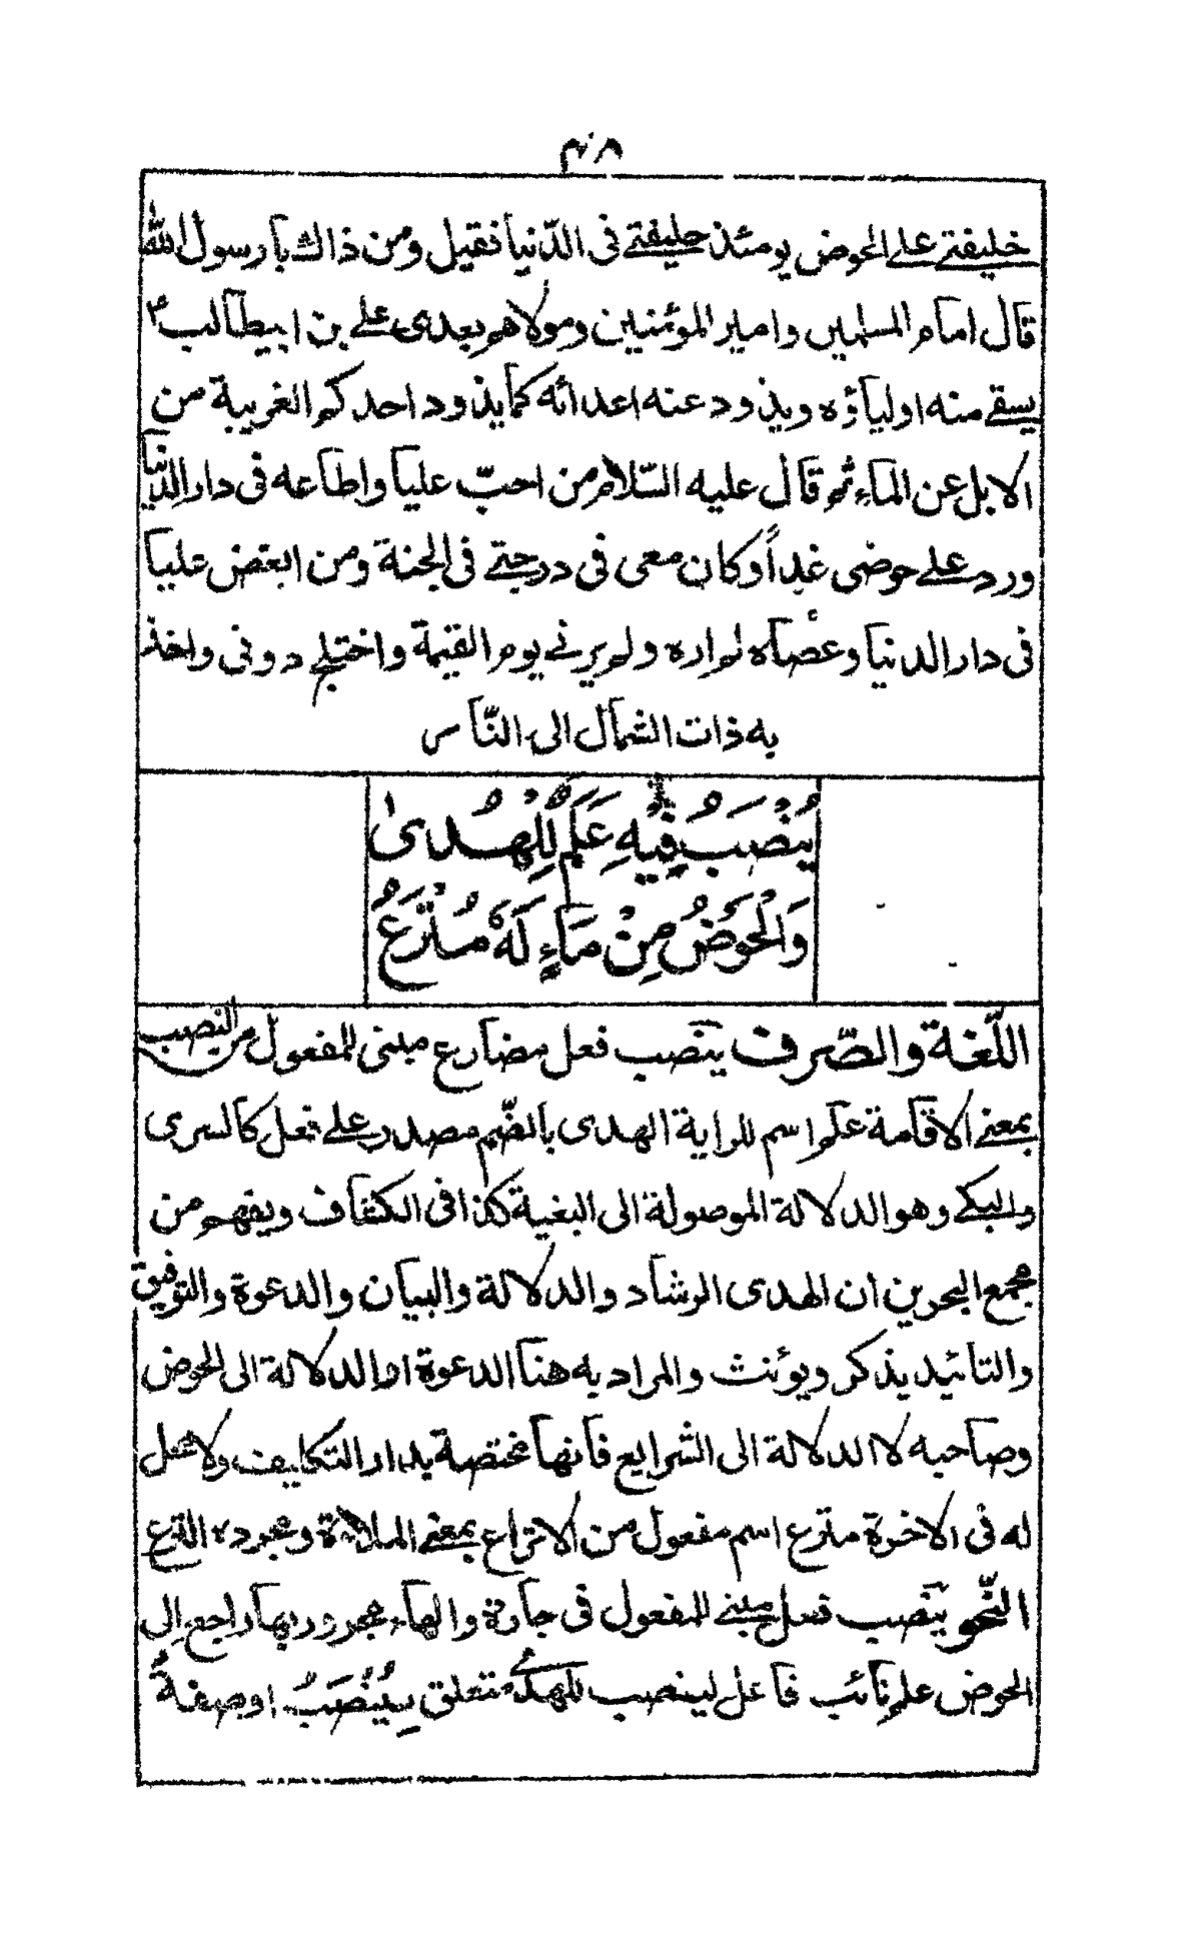 خليفتي على الحوض يومئذ خليفتي في الدّنيا فقيل ومن ذاك يا رسول الله
قال امام المسلمين وامير المؤمنين ومولاهم بعدى علي بن ابيطالب ع
يسقي منه اولياؤه ويذود عنه اعدائه كما يذود احدكم الغريبة من
الابل عن الماء ثم قال عليه السّلام من احبّ عليا واطاعه في دار الدنيا
ورد على حوضي غداً وكان معي في درجتي في الجنة ومن ابغض عليا
في دار الدنيا وعصاه لم اره ولم يرني يوم القيمة واختلج دوني واخذ
به ذات الشمال الى النّار
يُنْصَبُ فِيْهِ عَلَمٌ لِلْهُدىٰ
وَالْحَوْضُ مِنْ مَاءٍ لَهُ مُتْرَعُ
اللّغة والصّرف ينصب فعل مضارع مبني للمفعول من النصب
بمعنى الاقامة علم اسم للراية الهدى بالضّم مصدر على فعل كالسرى
والبكى وهو الدلالة الموصولة الى البغية كذا في الكشاف ويفهم من
مجمع البحرين ان الهدى الرشاد والدلالة والبيان والدعوة والتوفيق
والتائيد يذكر ويؤنث والمراد به هنا الدعوة او الدلالة الى الحوض
وصاحبه لا الدلالة الى الشرايع فانها مختصة بدار التكليف ولا محل
له في الاخرة مترع اسم مفعول من الاتراع بمعنى الملائة ومجرده الترع
النّحو ينصب فعل مبني للمفعول في جارة والهاء مجرور بها راجع الى
الحوض علم نائب فاعل لينصب للهدى متعلق بِيُنْصَبُ اوصفةٌ